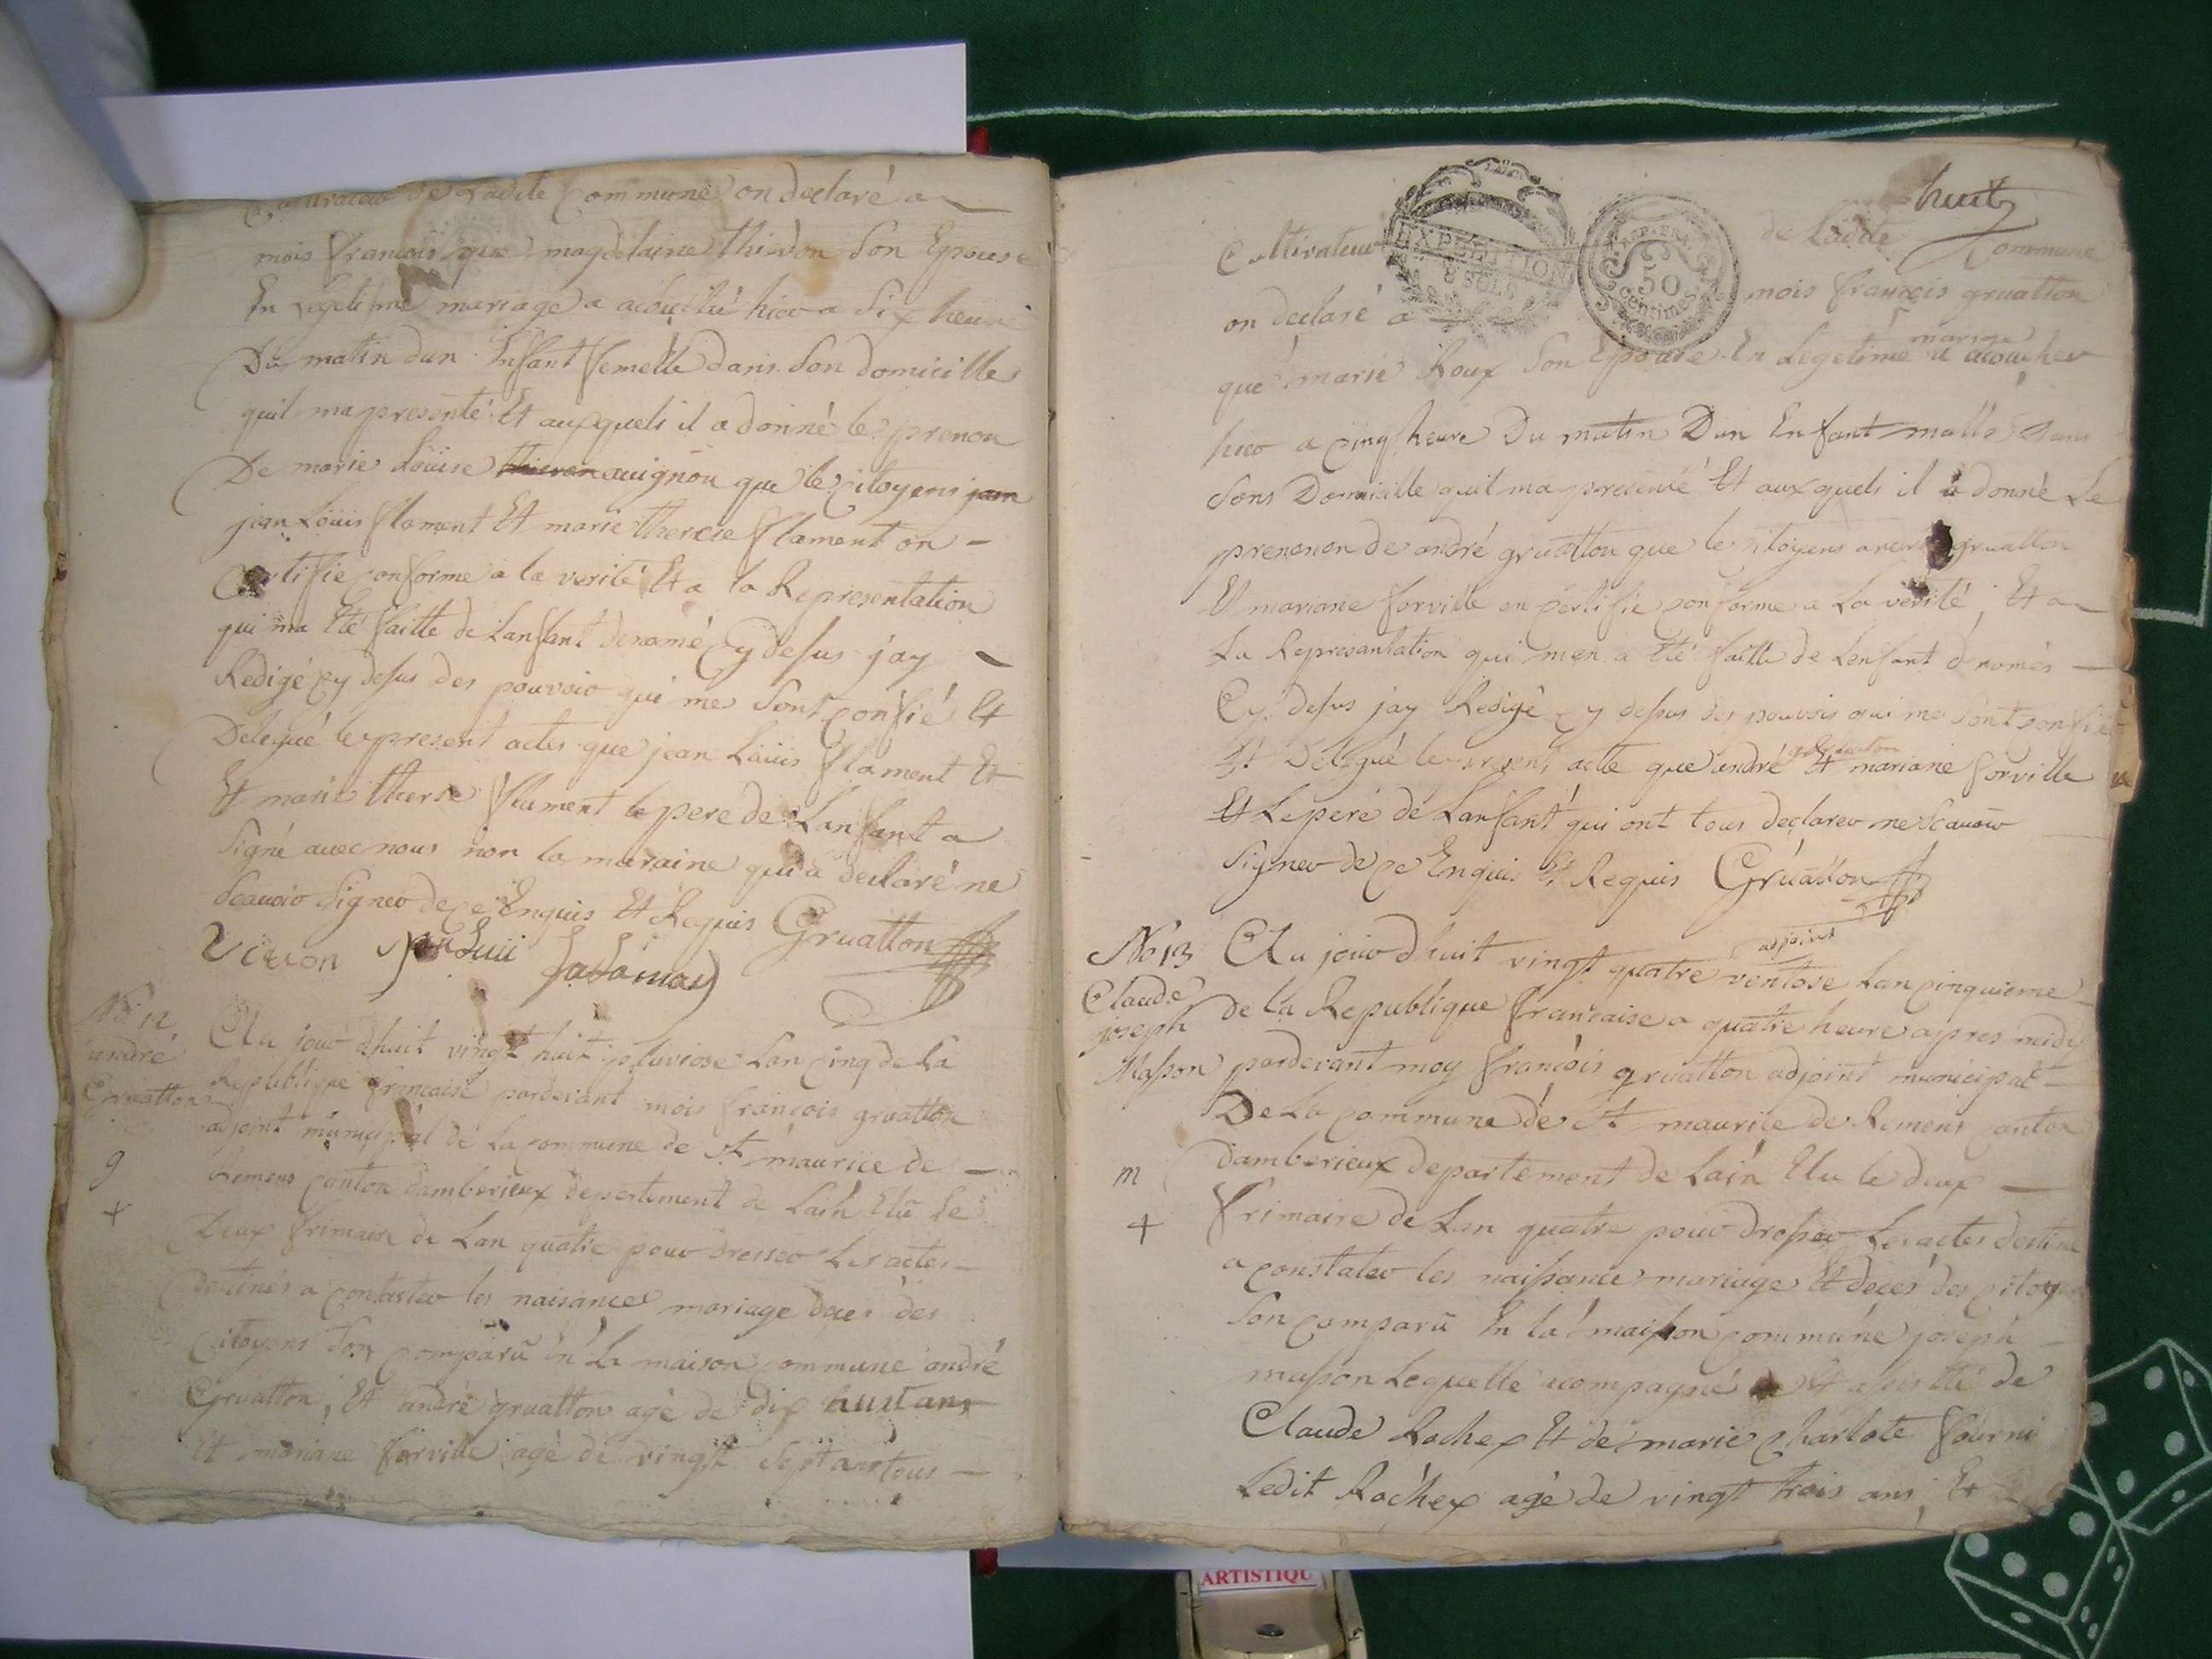 Cultivateur de Ladite Commune on declaré a
mois francois que magdelaine thievon Son Epouse
En Legetime mariage a acouché hier a Six heure
Du matin dun Enfant femelle dans Son domicille
quil ma presenté Et auxquels il a donné le prenon
De marie Loüise thievon auignon que le citoyens jean
jean Loüis flament Et marie therese flament on
Certifie conforme a la verité Et a la Representation
qui ma Eté faitte de Lanfant denomé Cy desus jay
Redigé cy desus des pouvoir qui me Sont confié Et
Delegué le present actes que jean Loüis flament Et
Et marie therse flament le pere de Lanfant a
Signé avec nous non la maraine qui a declaré ne
Scavoir Signer de ce Enquis Et Requis Gruatton
adjoint
No 12
andré
Gruatton
g
+
Au jour dhuit vingt huit pluviose Lan cinq de la
Republique francaise pardevant mois francois gruatton
adjoint municipal de la commune de St maurice de
Remens canton damberieux departement de Lain Elu le
Deux frimaire de Lan quatre pour dresser Les actes
destinés a contaster les naisances mariage deces des
citoyens Son comparu En La maison commune andré
Gruatton, Et andré gruatton agé de dix huit ans
Et mariane forville agé de vingt Sept ans tous
huit
Cultivateur de Ladite Commune
EXPEDITION
8 SOLS
REP. FRA.
50
centimes
on declaré a mois francois gruatton
que marie Roux Son Epouse En Legetime mariage a acoucher
hier a cinq heure Du matin Dun Enfant malle Dans
Sons Domicille quil ma presenté Et auxquels il a donné Le
prenonon de andré gruatton que le citoyens andré gruatton
Et mariane forville on certifie conforme a La verité, Et a
La Represantation qui men a Eté faitte de Lenfant dnomés
Cy desus jay Redigé cy desus des pouvois qui me Sont confié
Et Delegué le present acte que andré gruatton Et mariane forville
Et Le peré de Lanfant qui ont tous declarer ne Scavoir
Signer de ce Enquis Et Requis Gruatton
adjoint
No 13
Claude
joseph
Masson
m
+
Au jour dhuit vingt quatre ventose Lan cinquieme
de la Republique francaise a quatre heure apres midy
pardevant moy francois gruatton adjoint municipal
De La commune de St maurice de Remens canton
damberieux departement de Lain Elu le deux
frimaire de Lan quatre pour dresser Les actes destiné
a constater les naissance mariage Et deces des citoyen
Son comparu En la maison commune joseph
masson Lequelle acompagné Et asistté de
Claude Rochex Et de marie Charlote fourni
Ledit Rochex agé de vingt trois ans, Et
ARTISTIQU